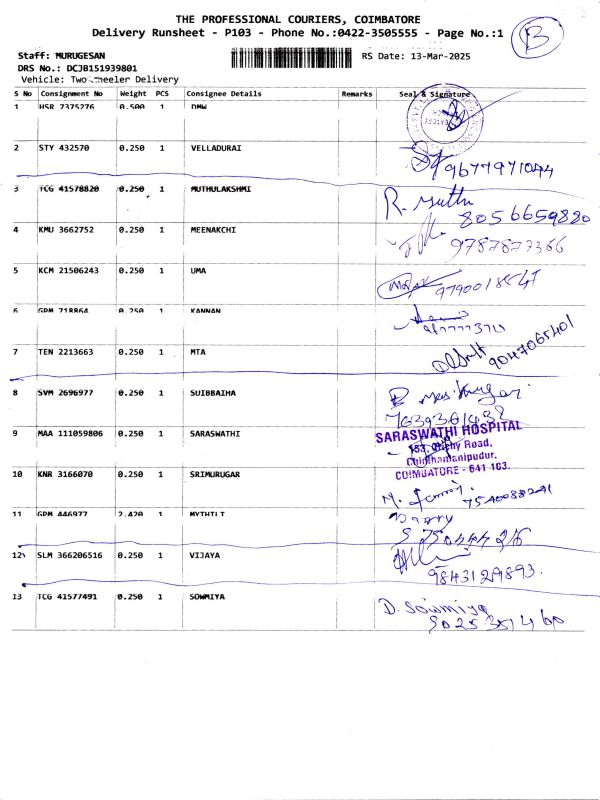 THE PROFESSIONAL COURIERS, COIMBATORE
Delivery Runsheet - P103 - Phone No.:0422-3505555 - Page No.:1
B
Staff: MURUGESAN
RS Date: 13-Mar-2025
DRS No.: DCJB151939801
Vehicle: Two Wheeler Delivery
S No Consignment No Weight PCS Consignee Details Remarks Seal & Signature
1 HSR 7375276 0.500 1 DMW
2 STY 432570 0.250 1 VELLADURAI
9677971044
3 TCG 41578820 0.250 1 MUTHULAKSHMI
R. Muthu
8056659880
4 KMU 3662752 0.250 1 MEENAKCHI
9787873366
5 KCM 21506243 0.250 1 UMA
6 GPM 718864 0.250 1 KANNAN
7 TEN 2213663 0.250 1 MTA
9047065401
8 SVM 2696977 0.250 1 SUIBBAIHA
9 MAA 111059806 0.250 1 SARASWATHI
SARASWATHI HOSPITAL
153, Trichy Road,
COIMBATORE - 641 103.
10 KNR 3166070 0.250 1 SRIMURUGAR
11 GPM 446977 2.420 1 MYTHILI
12 SLM 366206516 0.250 1 VIJAYA
9843129893.
13 TCG 41577491 0.250 1 SOWMIYA
D. Sowmiya